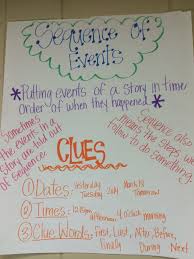 Sequence of
Events
*Putting events of a story in time *
order of when they happened.
Sometimes
the events in
a story are told out
of sequence.
Sequence also
means the steps we
follow to do something.
CLUES
① Dates: yesterday July March 18
Tuesday Tomorrow
② Times: 12:15pm 4 o'clock morning
afternoon
③ Clue Words: First, Last, After, Before,
Finally During Next